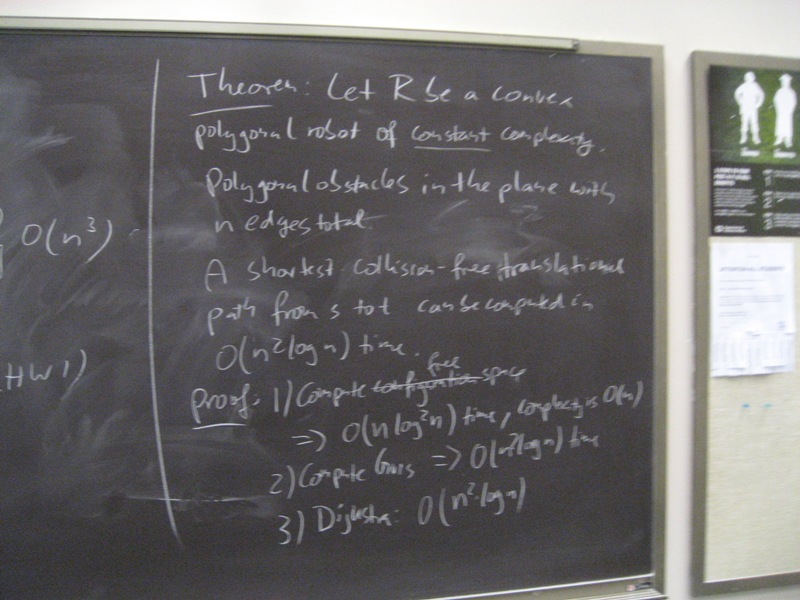 O(n³)
HW1)
Theorem: Let R be a convex
polygonal robot of constant complexity.
Polygonal obstacles in the plane with
n edges total.
A shortest collision-free translational
path from s to t can be computed in
O(n² log n) time.
Proof: 1) Compute configuration free space
=> O(n log² n) time, complexity is O(n)
2) Compute Gvis => O(n² log n) time
3) Dijkstra: O(n² · log n)